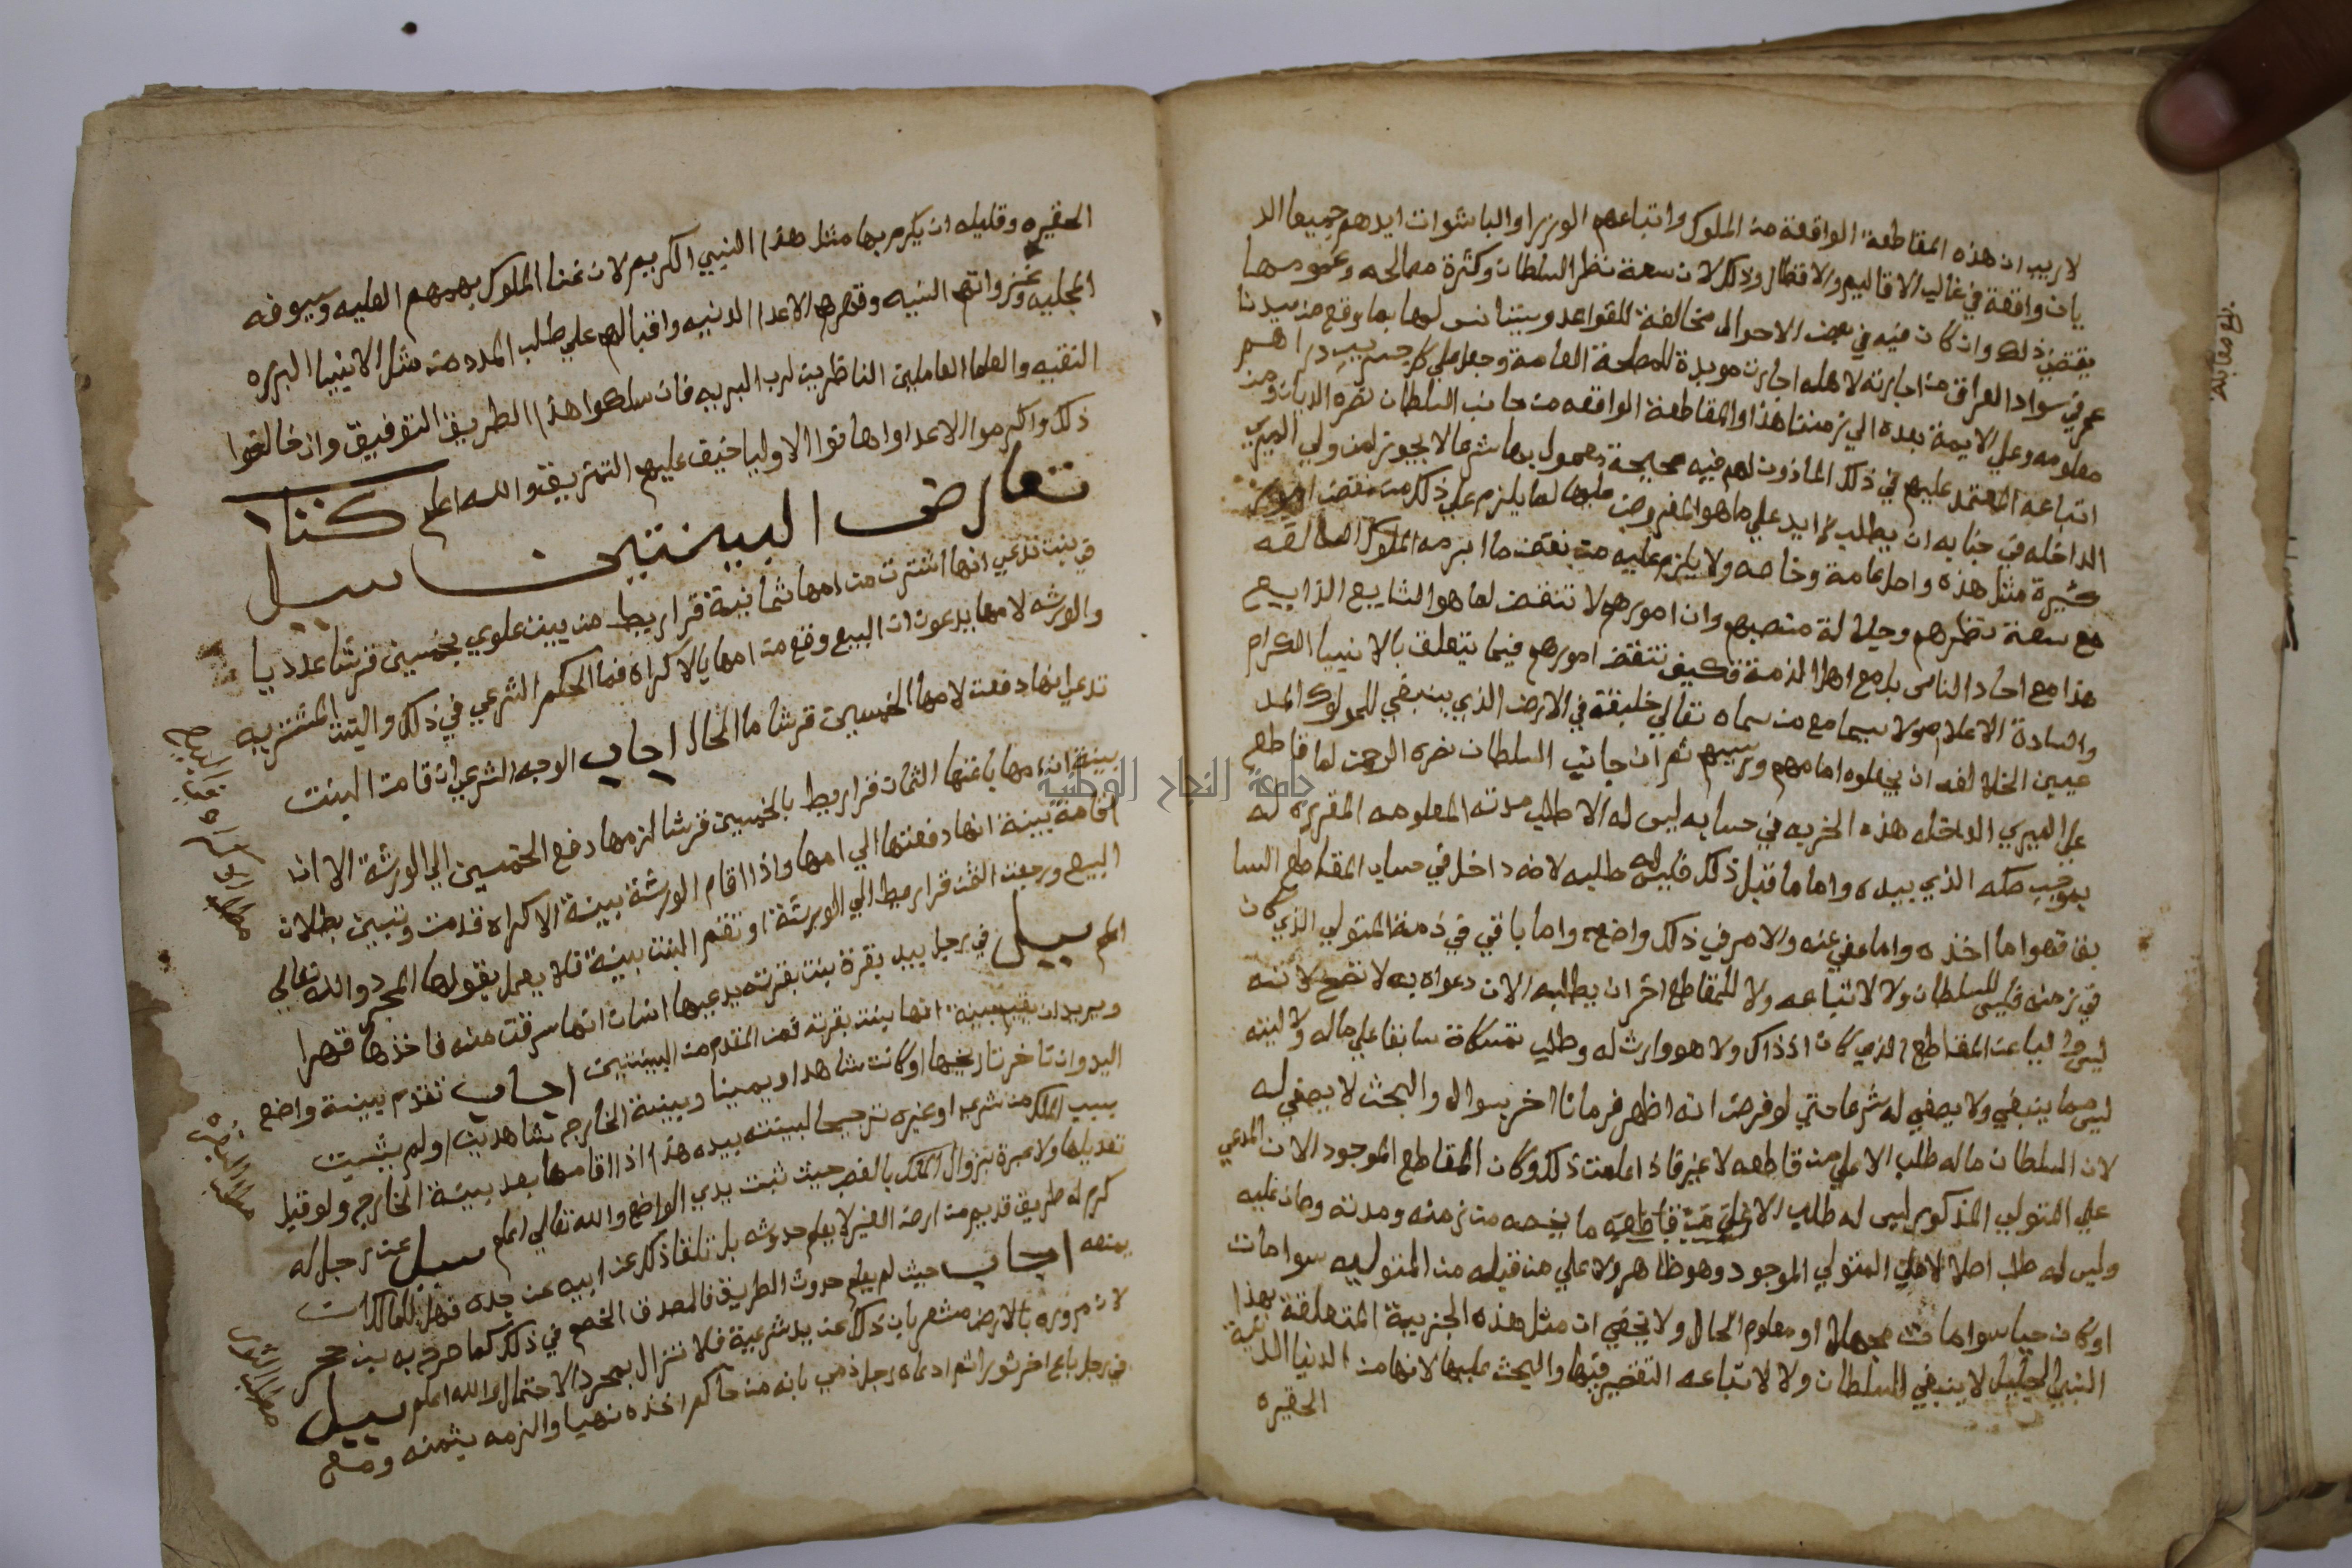 لا ريب ان هذه المقاطعة الواقعة من الملوك واتباعهم الوزرا والباشوات ايدهم جميعا الد
يان واقعة في غالب الاقاليم والاقطار وذلك لان سعة نظر السلطان وكثرة مصالحه وعمومها
يقتضي ذلك وان كان فيه في بعض الاحوال مخالفة للقواعد ويستانس لها بما وقع من سيدنا
عمر في سواد العراق من اجارته لاهله اجارت موبدة للمصلحة العامة وجعل علي كل جريب دراهم
معلومه وعلي الايمة بعده الي زمننا هذا والمقاطعة الواقعه من جانب السلطان نصره الديان ومن
اتباعه المعتمد عليهم في ذلك الماذون لهم فيه صحيحة معمول بها شرعا لا يجوز لمن ولي الميري
الداخله في جنابه ان يطلب زايد علي ما هو المفروض عليها لما يلزم علي ذلك من نقض امور
كثيرة مثل هذه واصل عامة وخاصه ولا يلزم عليه من نقض ما ابرمه الملوك السالفه
مع سعة نظرهم وجلالة منصبهم وان امورهم لا تنقض لما هو الشايع الذايع
هذا مع احاد الناس بل مع اهل الذمة فكيف تنقض امورهم فيما يتعلق بالانبيا الكرام
والسادة الاعلام ولا سيما مع من سماه تعالي خليفة في الارض الذي ينبغي للملوك المد
عيين الخلافه ان يجعلوه امامهم ثم ان جانب السلطان نصره الرحمن لما قاطع
علي الميري الداخله هذه الخربه في حسابه ليس له الا طلب مدته المعلومه المقرره له
بموجب صكه الذي بيده واما ما قبل ذلك فليس له طلبه لانه داخل في حساب المقاطع السا
بق فهو اما اخذه واما عفي عنه والامر في ذلك واضح واما باقي في ذمة المتولي الذي كان
في زمنه فليس للسلطان ولا لاتباعه ولا للمقاطع اخر ان يطلبه الان دعواه به لا تصح لانه
ليس نايبا عن المقاطع الذي كان اذ ذاك ولا هو وارث له وطلب سابقا علي ماله ولاليته
ليس مما ينبغي ولا يصغي له شرعا حتي لو فرض انه اظهر فرمانا اخر بسوال والبحث لا يصغي له
لان السلطان ماله طلب الا علي من قاطعه لا غير فاذا علمت ذلك وكان المقاطع الموجود الان المدعي
علي المتولي المذكور ليس له طلب الا علي من قاطعه ما يخصه من زمنه ومدته وصان عليه
وليس له طلب اصلا لا علي المتولي الموجود وهو ظاهر ولا علي من قبله من المتوليه سوا مات
او كان حيا سوا مات مجهلا او معلوم الحال ولا يخفي ان مثل هذه الجزيية المتعلقة بهذا
النبي الجليل لا ينبغي للسلطان ولا لاتباعه التقصير فيها والبحث عليها لانها من الدنيا الدنية
الحقيره
بلغ مقابلة
الحقيره وقليله ان يكرم بها مثل هذا النبي الكريم لان غنا الملوك بهممهم العليه وسيوفه
المجليه وغزواتهم السنيه وقهرهم الاعدا الدنيه واقبالهم علي طلب المدد من مثل الانبيا البرره
التقيه والعلما العاملين الناظرين لرب البريه فان سلكوا هذا الطريق التوفيق وان خالفوا
ذلك واكرموا الاعدا واهانوا الاوليا خيف عليهم التمزيق والله اعلم كتاب
تعارض البينتين سيل
في بنت تدعي انها اشترت من امها ثمانية قراريط من بيت علوي بخمسين قرشا عدديا
والورثه لامها يدعون ان البيع وقع من امها بالاكراه فما الحكم الشرعي في ذلك والبنت المشتريه
تدعي انها دفعت لامها الخمسين قرشا ما الحال اجاب الوجه الشرعي ان قامت البنت
بينة ان امها باعتها الثمان قراريط بالخمسين قرشا لزمها دفع الخمسين الي الورثة الا ان
اقامة بينة انها دفعتها الي امها واذا اقام الورثة بينة الاكراه قدمت وتبين بطلان
البيع ورجعت الثمن قراريط الي الورثة او تقم البنت بينة فلا يعمل بقولها المجرد والله تعالي
اعلم سيل في رجل بيده بقرة بنت بقرته يدعيها انسان انها سرقت منه فاخذها قهرا
ويريد ان يقيم بينة انها بنت بقرته فمن المقدم من البينتين اجاب تقدم بينة واضع
اليد وان تاخر تاريخها او كانت شاهدا ويمينا وبينة الخارج شاهدين او لم يثبت
بسبب الملك من شري او غيره ترجيحا لبينته بيده هذا اذا اقامها بعد بينة الخارج ولو قبل
تعديلها ولا عبرة بزوال الملك بالغصب حيث ثبت يدي الواضع والله تعالي اعلم سيل عن رجل له
كرم له طريق قديم من ارض الغير لا يعلم حدوثه بل تلقا ذلك عن ابيه عن جده فهل للمالك ان
يمنعه اجاب حيث لم يعلم حدوث الطريق فالمصدق الخصم في ذلك كما صرح به بن حجر
لان مروره بالارض مشعر بان ذلك عن يد شرعية فلا تزال بمجرد الاحتمال والله اعلم سيل
في رجل باع اخر ثورا ثم ادعاه رجل ذمي بانه من حاكم اخذه نهبا والزمه بثمنه ومع
مطلب
مطلب
مطلب الثور
جامعة النجاح الوطنية